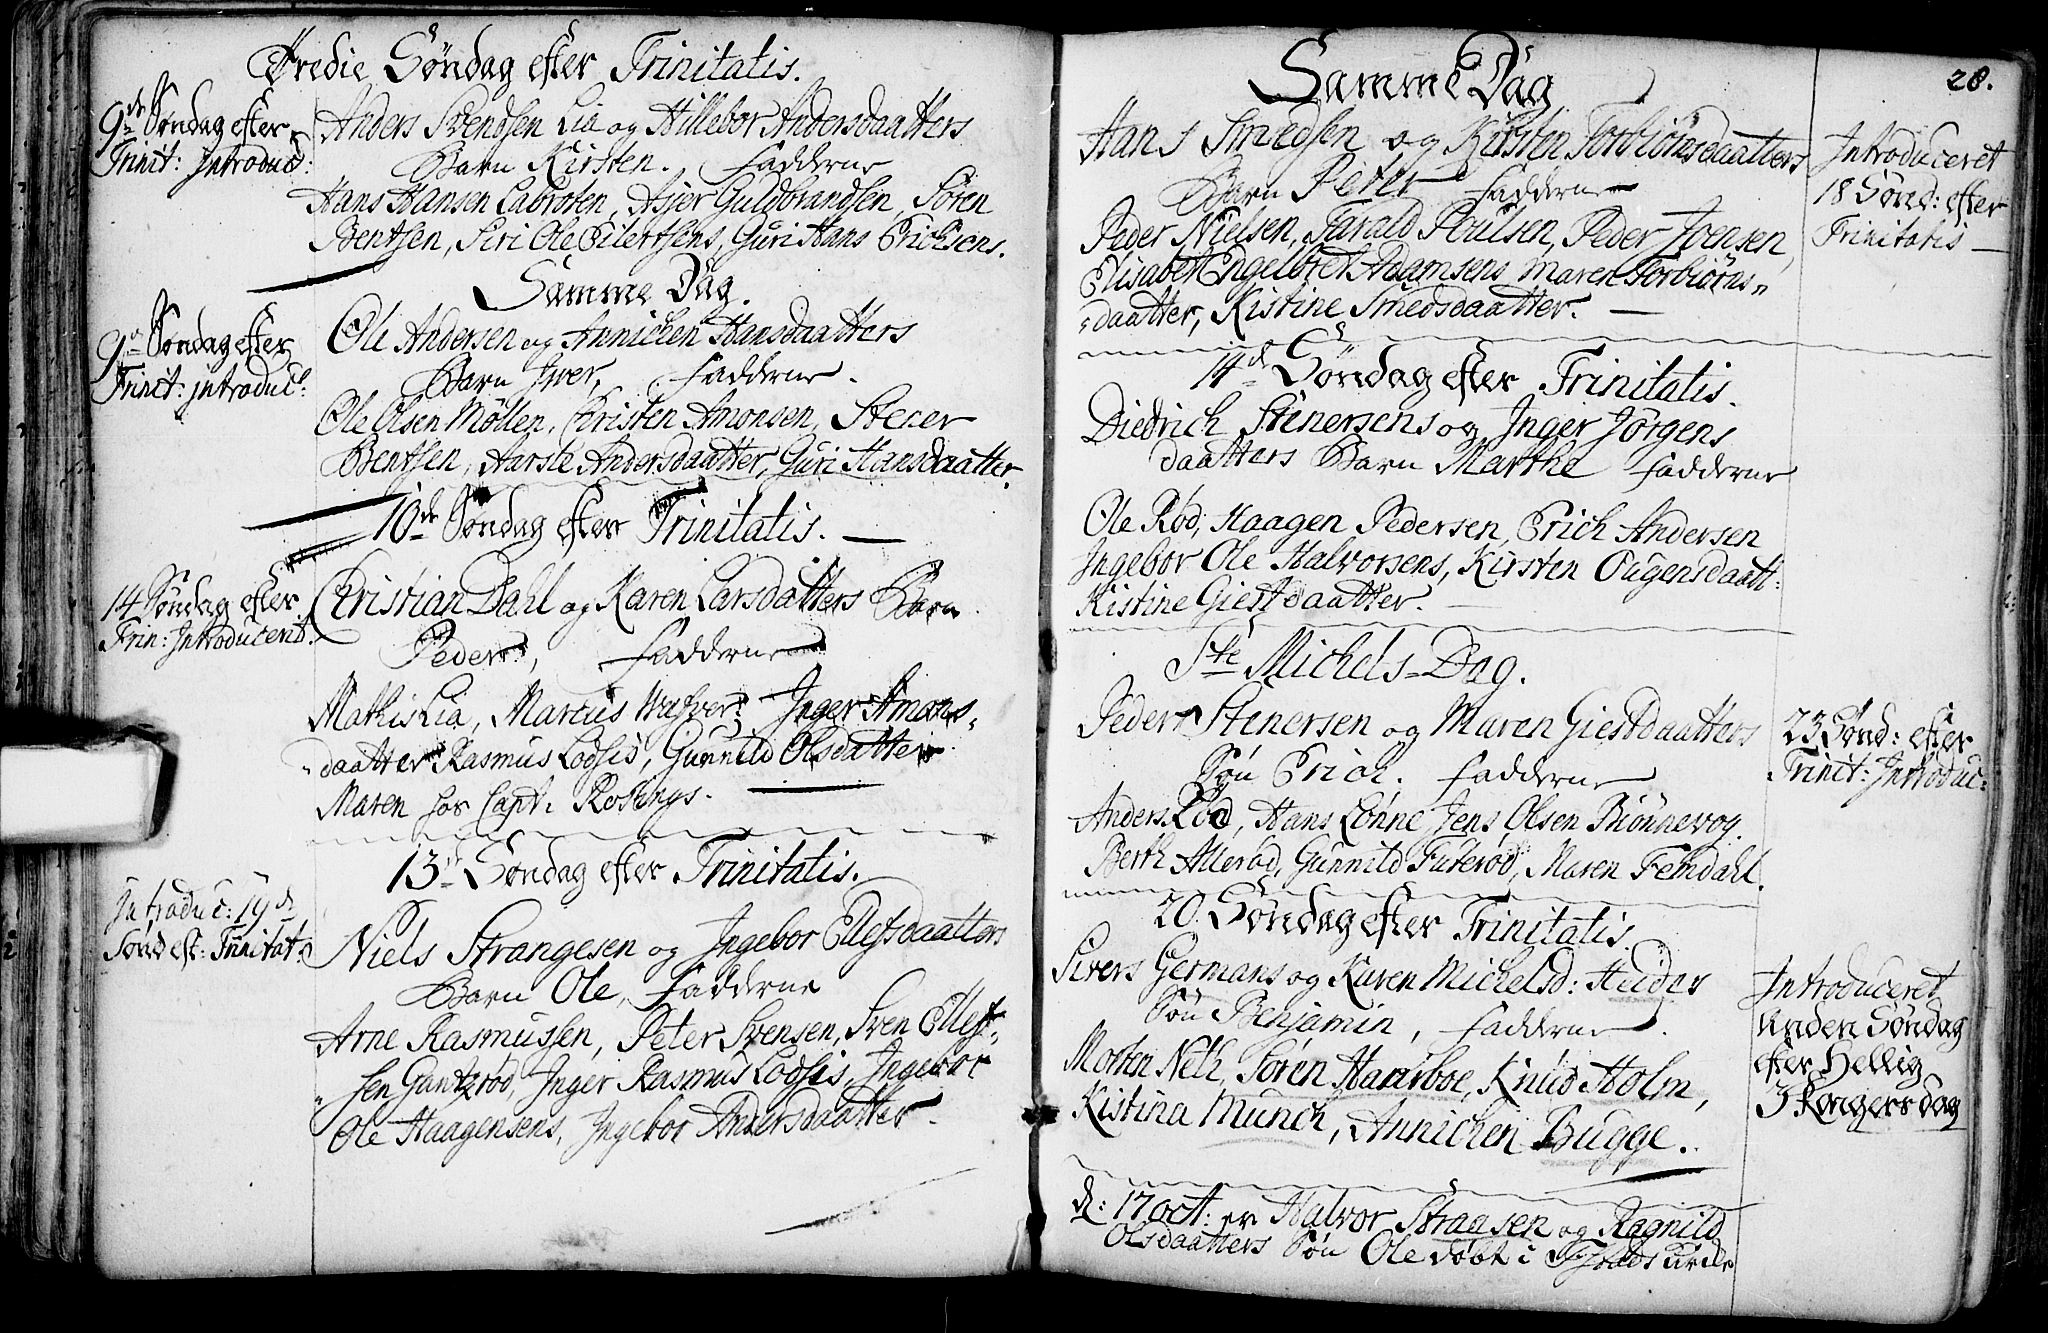 Tredie Søndag efter Trinitatis.
9de Søndag efter
Trinit: Introduc:
Anders Svendsen Lia og Hillebor Andersdaatters
Barn Kirsten. Fadderne
Hans Hansen Labroten, Asjer Guldbrandsen, Søren
Bentsen, Siri Ole Eilertsens, Guri Hans Erichsens.
Samme Dag.
9de Søndag efter
Trinit: introduc:
Ole Andersen og Annichen Hansdaatters
Barn Iver, Fadderne.
Ole Olsen Möllen, Christen Amonsen, Stener
Bentsen, Aarste Andersdaatter, Guri Hansdaatter.
10de Søndag efter Trinitatis.
14 Søndag efter
Trin: Introducerit.
Christian Dahl og Karen Larsdatters Barn
Peder, Fadderne
Mathis Lia, Marcus Inger Amons-
daatter Rasmus Lodsis, Gunnild Olsdatter
Maren hos Capt. Rosings.
13de Søndag efter Trinitatis.
Introduc: 19de
Sønd eft: Trinitat:
Niels Strangesen og Ingebor Ellefsdaatters
Barn Ole, Fadderne
Arne Rasmussen, Peter Svensen, Sven Ellef-
sen Gantzrød, Inger Rasmus Lodsis, Ingebor
Ole Haagensens, Ingebor Andersdaatter.
28.
Samme Dag
Hans Smedsen og Kirsten Torbiörnsdaatters
Barn Peter Fadderne
Introduceret
18 Sønd: efter
Trinitatis
Peder Nielsen, Tarald Poulsen, Peder Joensen,
Elisabet Engelbret Adamsens Maren Torbiørns-
daatter, Kistine Smedsdaatter.
14de Søndag efter Trinitatis.
Diedrich Stenersens og Inger Jörgens
daatters Barn Marthe Fadderne
Ole Rød, Haagen Pedersen, Erich Andersen
Ingebor Ole Halvorsens, Kirsten Ougensdaatt:
Kistine Giestdaatter.
Ste Michels-Dag.
Peder Stenersen og Maren Giestdaatters
Søn Erich. Fadderne
23 Sønd: efter
Trinit: Introduc:
Anders Rød, Hans Lønne Jens Olsen Biönnevog.
Berth Allerød, Gunnild Futerød, Maren Femdahl.
20. Søndag efter Trinitatis.
Sivers Germans og Karen Michelsd: Heides
Søn Benjamin, Fadderne
Introduceret
Anden Søndag
efter Hellig
3 Kongers dag
Morten Neth, Sören Haarboe, Knud Holm,
Kistina Munch, Annichen Bugge.
d: 17 oct: er Halvor Straasen og Ragnild
Olsdaatters Søn Ole døbt i Kirke